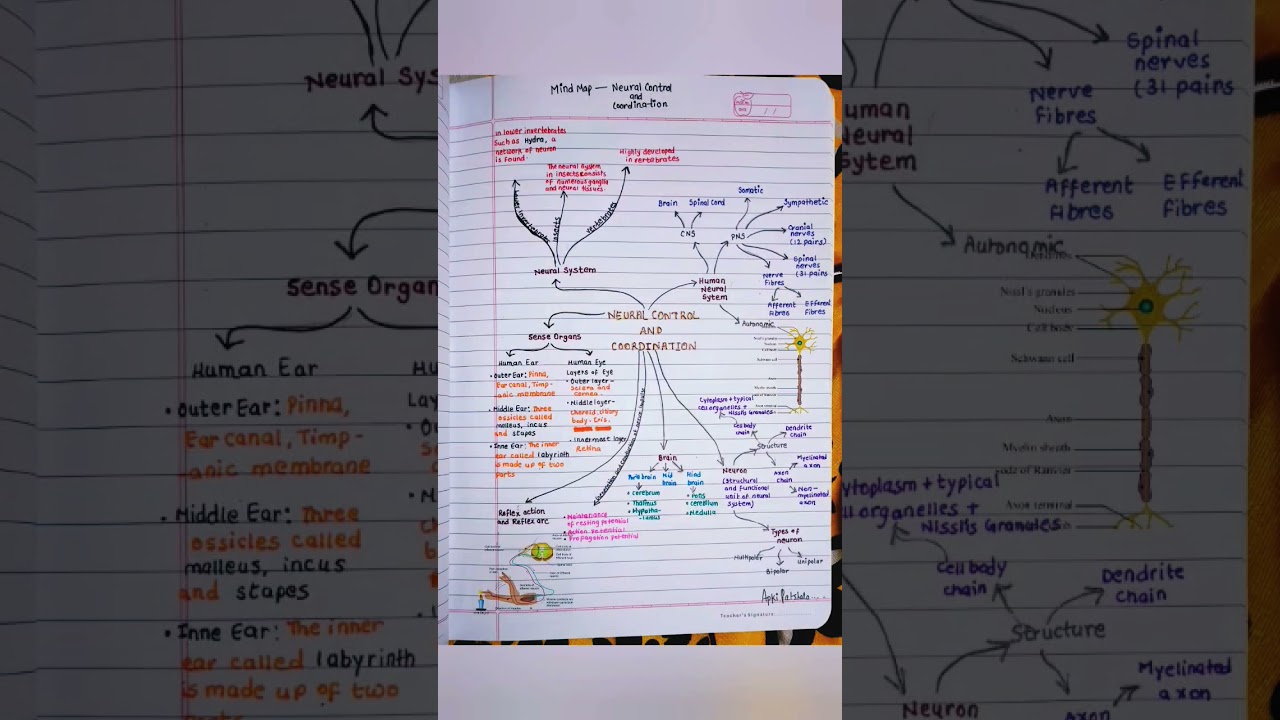 Mind Map — Neural Control
and
Coordination
in lower invertebrates
Such as Hydra, a
network of neuron
is found.
The neural system
in insects consists
of numerous ganglia
and neural tissues.
Highly developed
in vertabrates
lower invertebrates
insects
vertebrates
Neural System
Brain
Spinal Cord
Somatic
Sympathetic
CNS
PNS
Cranial
nerves
(12 pairs)
Spinal
nerves
(31 pairs
Nerve
Fibres
Afferent
Fibres
Efferent
Fibres
Human
Neural
Sytem
Autonomic
NEURAL CONTROL
AND
COORDINATION
Sense Organs
Human Ear
• Outer Ear: Pinna,
Ear canal, Timp-
anic membrane
• Middle Ear: Three
ossicles called
malleus, incus
and stapes
• Inne Ear: The inner
ear called labyrinth
is made up of two
parts
Human Eye
Layers of Eye
• Outer layer -
Sclera and
cornea
• Middle layer-
Choroid, ciliary
body, Iris.
• Innermost layer
Retina
Nissl's granules
Nucleus
Cell body
Schwann cell
Axon
Myelin sheath
Axon terminal
Cytoplasm + typical
cell organelles +
Nissl's Granules
Cell body
chain
Dendrite
chain
Structure
Axon
chain
Myelinated
axon
Non-
myelinated
axon
Neuron
(Structural
and Functional
unit of neural
System)
Types of
neuron
Multipolar
Bipolar
Unipolar
Brain
Fore brain
• Cerebrum
• Thalmus
• Hypotha-
lamus
Mid
brain
Hind
brain
• Pons
• cerebellum
• Medulla
Reflex action
and Reflex arc
• Maintanance
of resting potential
• Action potential
• Propagation potential
Apki Patshala....
Teacher's Signature
Neural Sys
Sense Organ
Human Ear
• Outer Ear: Pinna,
Ear canal, Timp-
anic membrane
• Middle Ear: Three
ossicles called
malleus, incus
and stapes
• Inne Ear: The inner
ear called labyrinth
is made up of two
Spinal
nerves
(31 pairs
Nerve
Fibres
Afferent
Fibres
Efferent
Fibres
uman
Neural
Sytem
Autonomic
Nissl's granules
Nucleus
Cell body
Schwann cell
Axon
Myelin sheath
ode of Ranvier
Axon terminal
ytoplasm + typical
ll organelles +
Nissl's Granules
Cell body
chain
Dendrite
chain
Structure
Myelinated
axon
Neuron
Axon